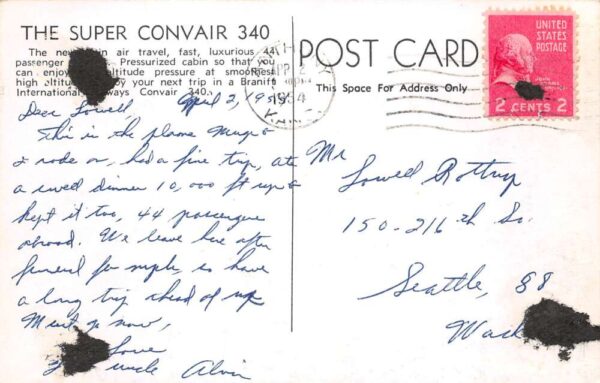 THE SUPER CONVAIR 340
The new in air travel, fast, luxurious 44
passenger Pressurized cabin so that you
can enjoy altitude pressure at smoothest
high altitud by your next trip in a Braniff
International ways Convair 340.
POST CARD
This Space For Address Only
UNITED
STATES
POSTAGE
2 CENTS 2
APR 2
1954
Dear Lowell April 2, 195
This is the plane Marge &
I rode on, had a fine trip, ate
a swell dinner 10,000 ft up &
kept it too, 44 passengers
aboard. We leave here after
funeral for so have
a long trip ahead of us
Must go now,
Love
Uncle Alvin
Mr
Lowell
150-216 th So.
Seattle, 88
Wash